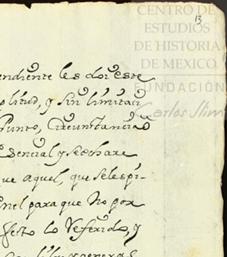 CENTRO DE
ESTUDIOS
DE HISTORIA
DE MEXICO
FUNDACIÓN
Carlos Slim
13
endiente les doi este
plitud, y sin limitaci
Punto, Circunstancia
esencial y se echare
ue aquel, que se le espi
nel para que No por
fecto lo Referido, y